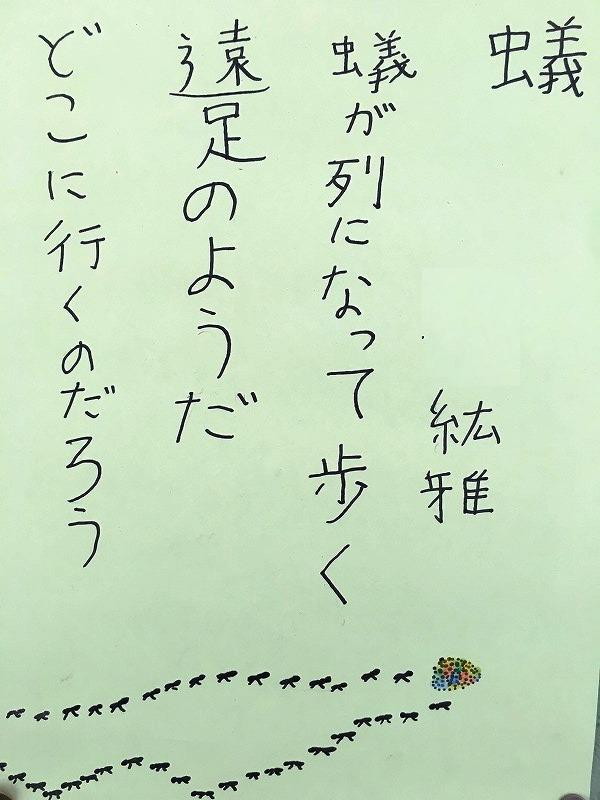 蟻
紘雅
蟻が列になって歩く
遠足のようだ
どこに行くのだろう